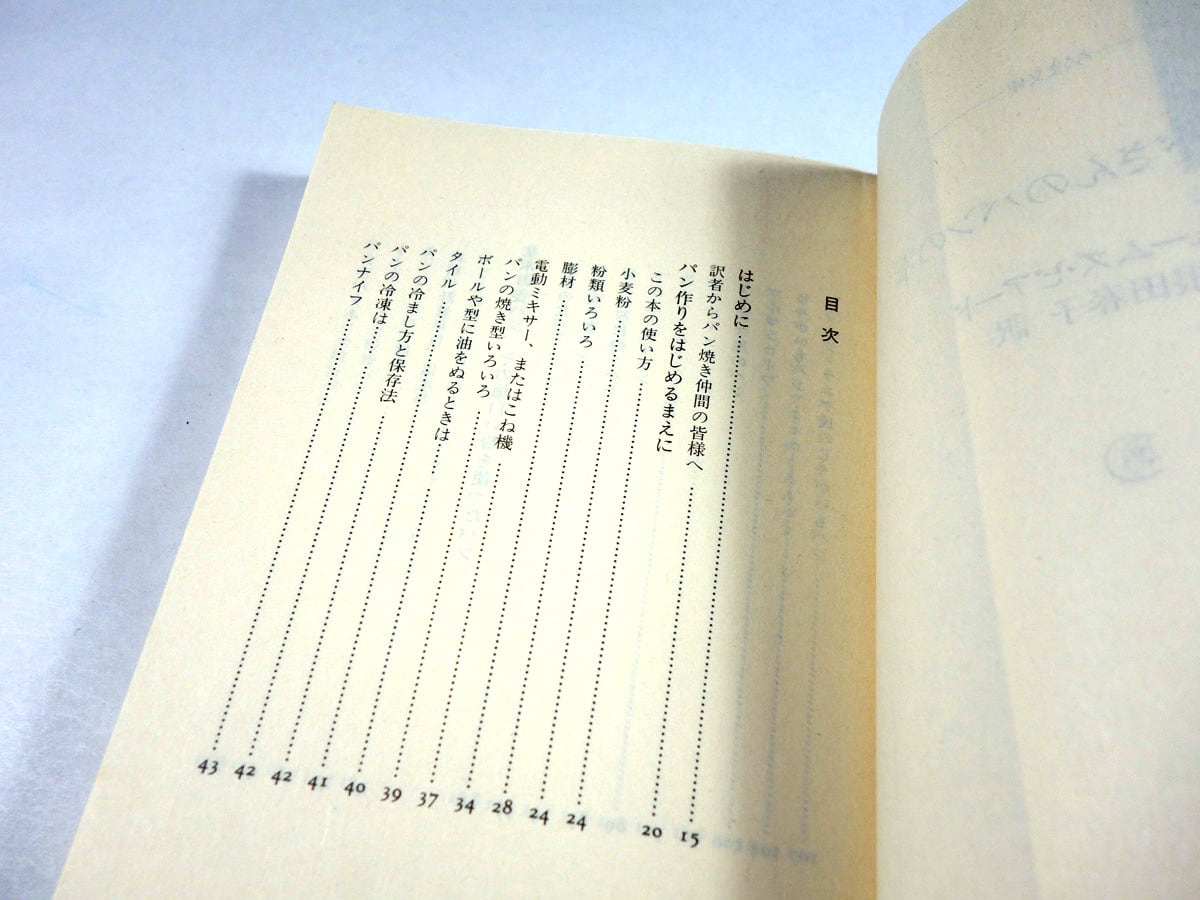 目次
はじめに……15
訳者からパン焼き仲間の皆様へ……20
パン作りをはじめるまえに
この本の使い方……24
小麦粉……24
粉類いろいろ……28
膨材……34
電動ミキサー、またはこね機……37
パンの焼き型いろいろ……39
ボールや型に油をぬるときは……40
タイル……41
パンの冷まし方と保存法……42
パンの冷凍は……42
パンナイフ……43